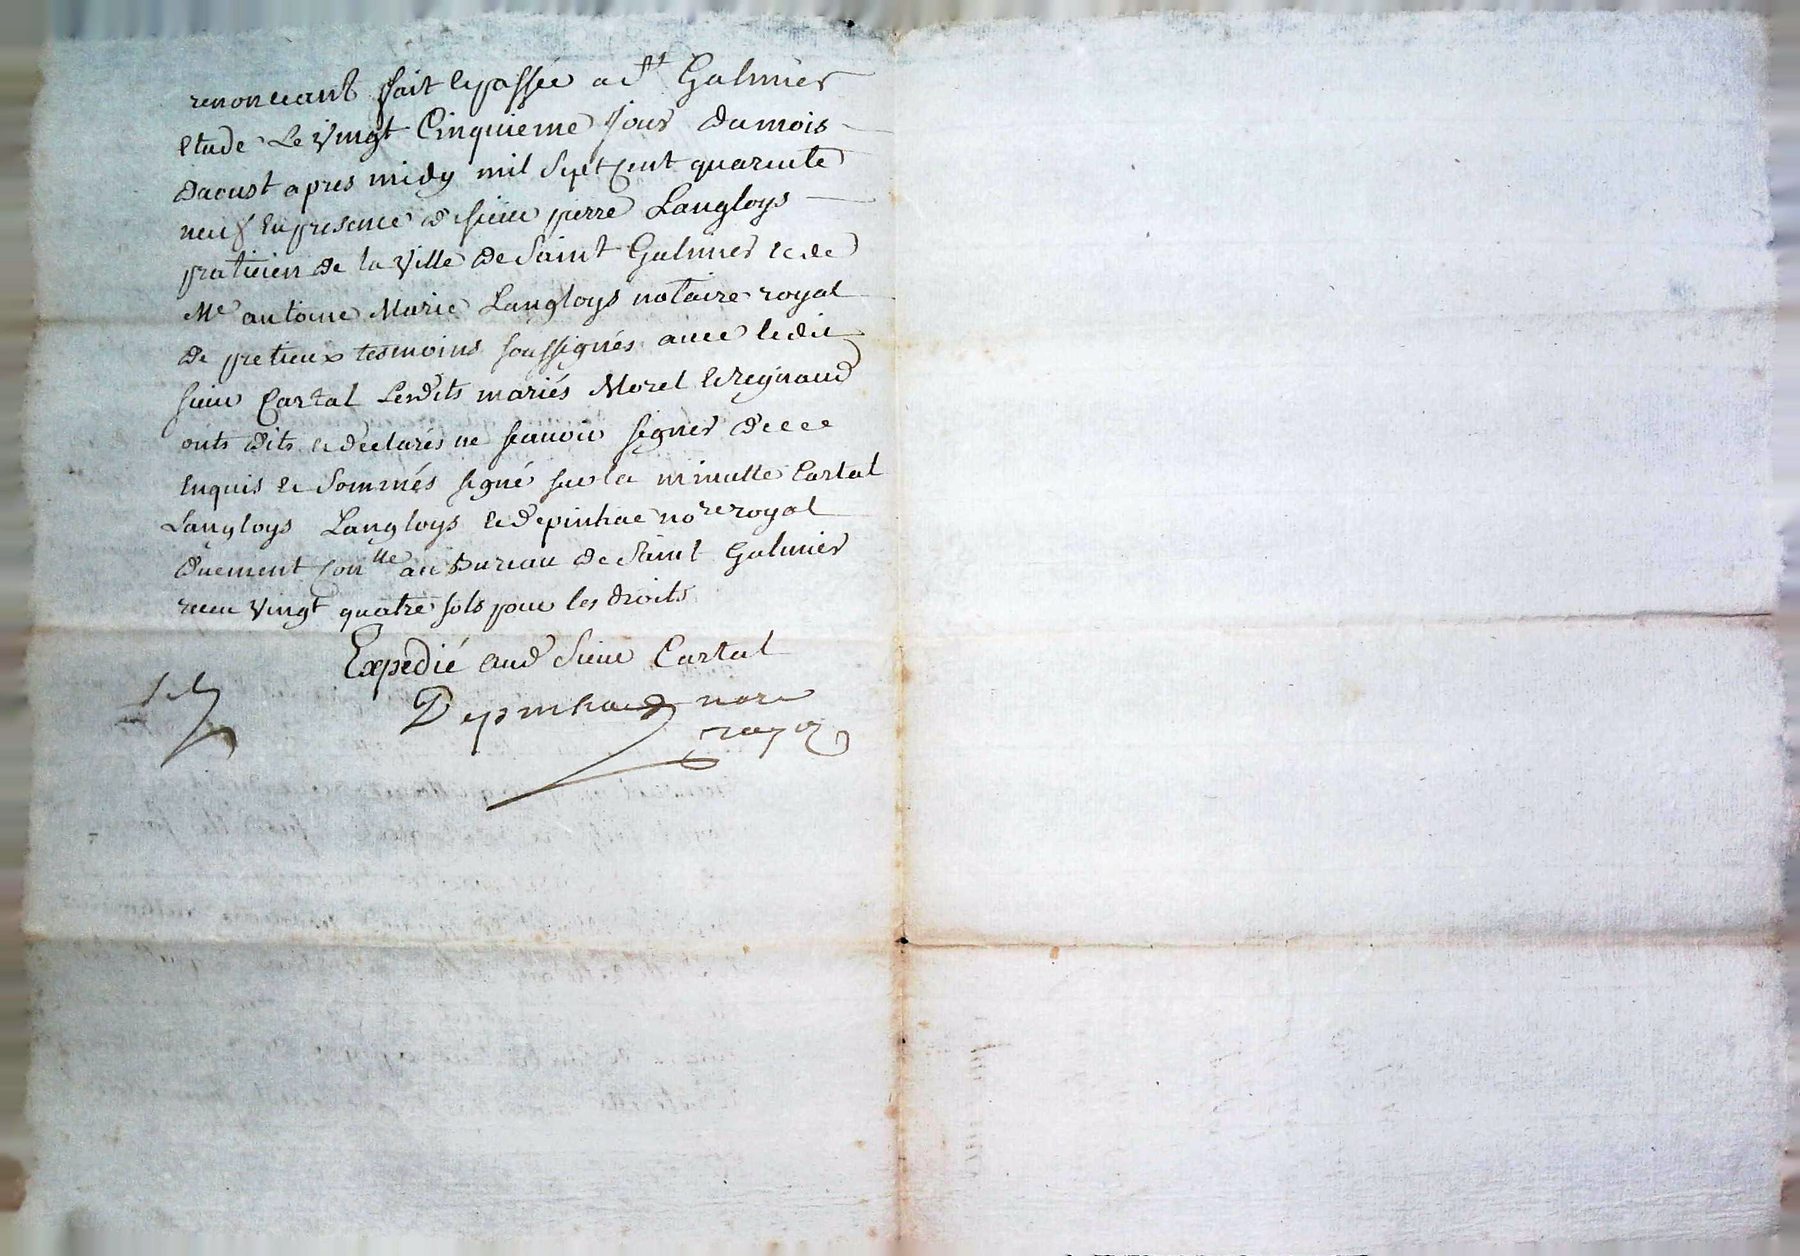 renonceant fait & passée a St Galmier
etude Le vingt Cinquieme jour du mois
daoust apres midy mil sept cent quarente
neuf En presence de sieur pierre Langloys
praticien de la ville de Saint Galmier & de
Me antoine Marie Langloys notaire royal
de pretieux tesmoins soussignés avec ledit
sieur Cartal Lesdits mariés Morel & regnaud
onts dits & declarés ne scauoir signer de ce
Enquis & Sommés signé sur la minutte Cartal
Langloys Langloys & depinhac nore royal
duement conlle au Bureau de Saint Galmier
receu vingt quatre sols pour les droits
Expedié aud Sieur Cartal
Depinhac nore
royal